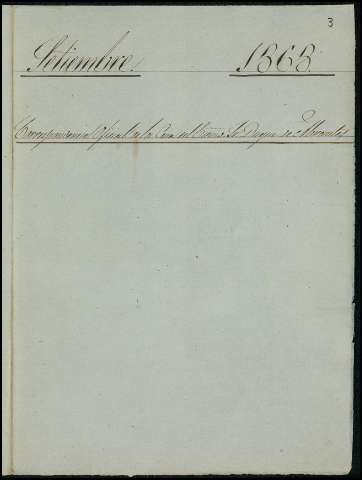 3
Setiembre. 1868.
Correspondencia Oficial de la Casa del Excmo. Sr. Duque de Abrantes